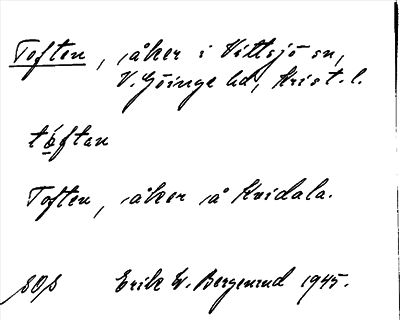 Toften, åker i Vittsjö sn,
V. Göinge hd, Krist. l.
tọ́ftan
Toften, åker å Hvidala.
SOS Erik W. Bergenrud 1945.